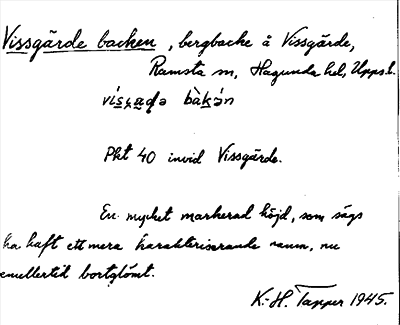 Vissgärde backen, bergbacke å Vissgärde,
Ramsta sn, Hagunda hd, Upps.l.
bàkə́n
Pkt 40 invid Vissgärde.
En mycket markerad höjd, som sägs
ha haft ett mera karakteriserande namn, nu
emellertid bortglömt.
K.-H. Tapper 1945.